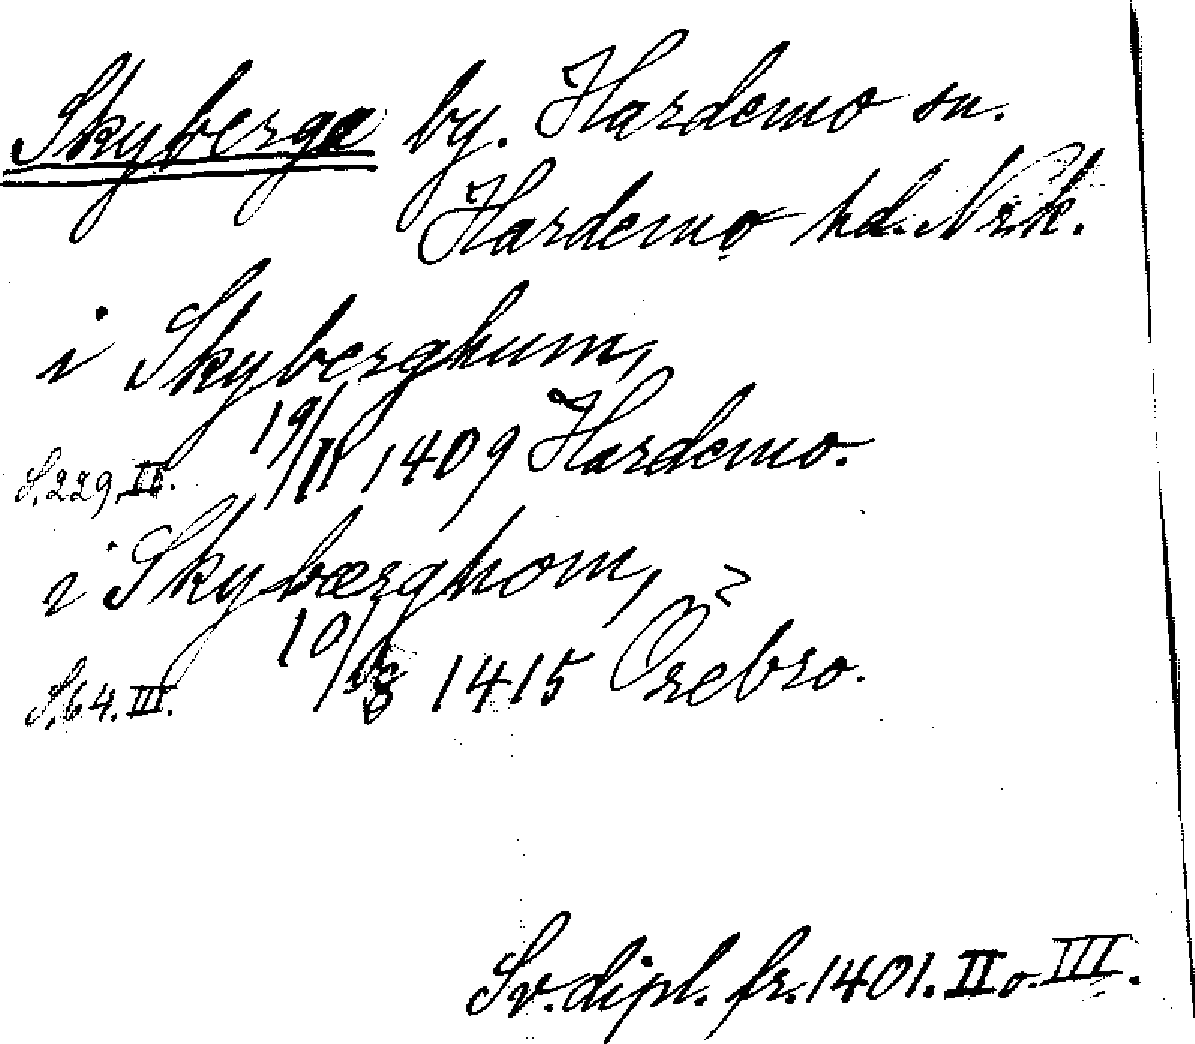 Skyberga by. Hardemo sn.
Hardemo hd. Nrk.
i Skyberghum,
19/11 1409 Hardemo.
S. 229. II.
i Skybærghom, ?
10/8 1415 Örebro.
S. 64. III.
Sv. dipl. fr. 1401. II o. III.